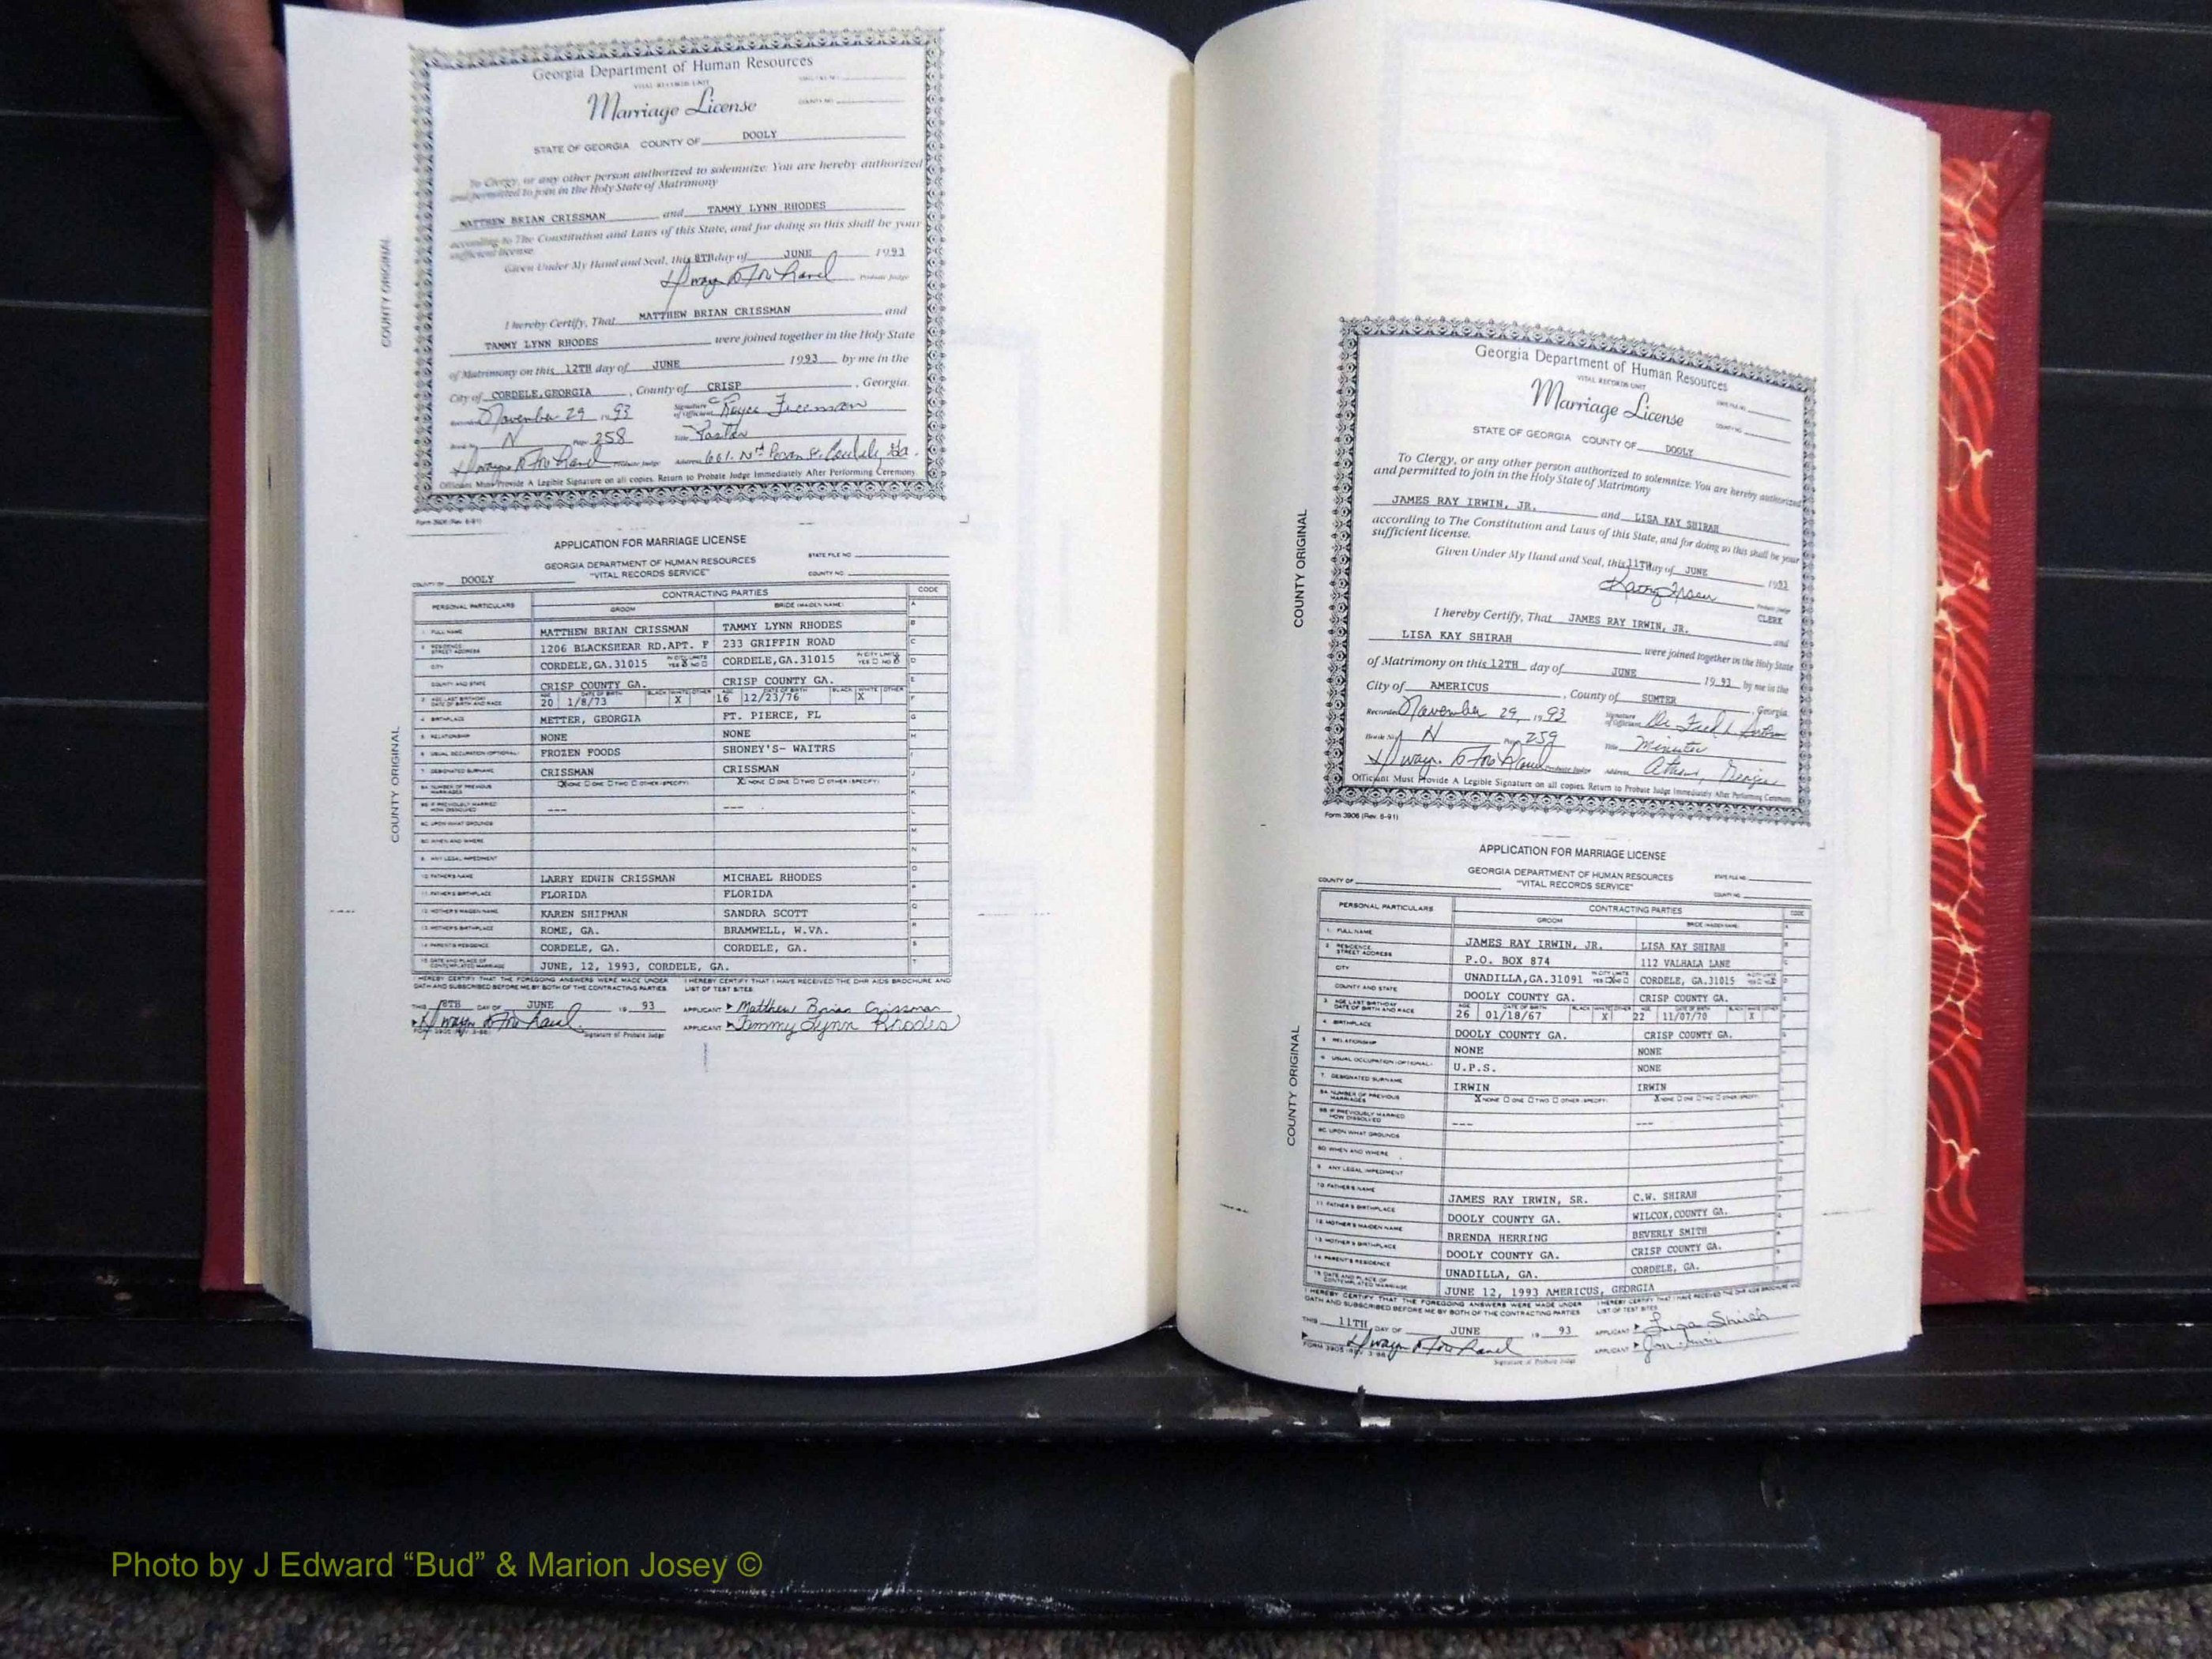 Georgia Department of Human Resources
VITAL RECORDS UNIT
Marriage License
COUNTY NO.
STATE OF GEORGIA COUNTY OF DOOLY
To Clergy, or any other person authorized to solemnize: You are hereby authorized
and permitted to join in the Holy State of Matrimony
MATTHEW BRIAN CRISSMAN and TAMMY LYNN RHODES
according to The Constitution and Laws of this State, and for doing so this shall be your
sufficient license.
Given Under My Hand and Seal, this 8TH day of JUNE 1993
Probate Judge
I hereby Certify, That MATTHEW BRIAN CRISSMAN and
TAMMY LYNN RHODES were joined together in the Holy State
of Matrimony on this 12TH day of JUNE 1993 by me in the
City of CORDELE, GEORGIA, County of CRISP, Georgia.
Recorded November 29 1993 Signature of Officiant Royce Freeman
Book No. N Page 258 Title Pastor
Probate Judge Address 661 Cordele, Ga.
Officiant Must Provide A Legible Signature on all copies. Return to Probate Judge Immediately After Performing Ceremony.
Form 3906 (Rev. 6-91)
COUNTY ORIGINAL
APPLICATION FOR MARRIAGE LICENSE
GEORGIA DEPARTMENT OF HUMAN RESOURCES STATE FILE NO.
COUNTY OF DOOLY "VITAL RECORDS SERVICE" COUNTY NO.
PERSONAL PARTICULARS CONTRACTING PARTIES CODE
GROOM BRIDE (MAIDEN NAME)
1. FULL NAME MATTHEW BRIAN CRISSMAN TAMMY LYNN RHODES
2. RESIDENCE STREET ADDRESS 1206 BLACKSHEAR RD.APT. F 233 GRIFFIN ROAD
CITY CORDELE,GA.31015 IN CITY LIMITS YES X NO CORDELE,GA.31015 IN CITY LIMITS YES NO X
COUNTY AND STATE CRISP COUNTY GA. CRISP COUNTY GA.
3. AGE LAST BIRTHDAY DATE OF BIRTH AND RACE 20 1/8/73 X 16 12/23/76 X
4. BIRTHPLACE METTER, GEORGIA FT. PIERCE, FL
5. RELATIONSHIP NONE NONE
6. USUAL OCCUPATION (OPTIONAL) FROZEN FOODS SHONEY'S- WAITRS
7. DESIGNATED SURNAME CRISSMAN CRISSMAN
8A. NUMBER OF PREVIOUS MARRIAGES X NONE ONE TWO OTHER (SPECIFY) X NONE ONE TWO OTHER (SPECIFY)
8B. IF PREVIOUSLY MARRIED HOW DISSOLVED --- ---
8C. UPON WHAT GROUNDS
8D. WHEN AND WHERE
9. ANY LEGAL IMPEDIMENT
10. FATHER'S NAME LARRY EDWIN CRISSMAN MICHAEL RHODES
11. FATHER'S BIRTHPLACE FLORIDA FLORIDA
12. MOTHER'S MAIDEN NAME KAREN SHIPMAN SANDRA SCOTT
13. MOTHER'S BIRTHPLACE ROME, GA. BRAMWELL, W.VA.
14. PARENT'S RESIDENCE CORDELE, GA. CORDELE, GA.
15. DATE AND PLACE OF CONTEMPLATED MARRIAGE JUNE, 12, 1993, CORDELE, GA.
I HEREBY CERTIFY THAT THE FOREGOING ANSWERS WERE MADE UNDER I HEREBY CERTIFY THAT I HAVE RECEIVED THE DHR AIDS BROCHURE AND
OATH AND SUBSCRIBED BEFORE ME BY BOTH OF THE CONTRACTING PARTIES. LIST OF TEST SITES.
THIS 8TH DAY OF JUNE 19 93 APPLICANT Matthew Brian Crissman
APPLICANT Tammy Lynn Rhodes
FORM 3905 (REV. 3-88) Signature of Probate Judge
COUNTY ORIGINAL
Georgia Department of Human Resources
VITAL RECORDS UNIT
Marriage License
STATE FILE NO.
COUNTY NO.
STATE OF GEORGIA COUNTY OF DOOLY
To Clergy, or any other person authorized to solemnize: You are hereby authorized
and permitted to join in the Holy State of Matrimony
JAMES RAY IRWIN, JR. and LISA KAY SHIRAH
according to The Constitution and Laws of this State, and for doing so this shall be your
sufficient license.
Given Under My Hand and Seal, this 11TH day of JUNE 1993
Probate Judge
CLERK
I hereby Certify, That JAMES RAY IRWIN, JR. and
LISA KAY SHIRAH were joined together in the Holy State
of Matrimony on this 12TH day of JUNE 1993 by me in the
City of AMERICUS, County of SUMTER, Georgia.
Recorded November 29, 1993 Signature of Officiant Dr. Fred L.
Book No. N Page 259 Title Minister
Probate Judge Address Athens, Georgia
Officiant Must Provide A Legible Signature on all copies. Return to Probate Judge Immediately After Performing Ceremony.
Form 3906 (Rev. 6-91)
COUNTY ORIGINAL
APPLICATION FOR MARRIAGE LICENSE
GEORGIA DEPARTMENT OF HUMAN RESOURCES STATE FILE NO.
COUNTY OF "VITAL RECORDS SERVICE" COUNTY NO.
PERSONAL PARTICULARS CONTRACTING PARTIES CODE
GROOM BRIDE (MAIDEN NAME)
1. FULL NAME JAMES RAY IRWIN, JR. LISA KAY SHIRAH
2. RESIDENCE STREET ADDRESS P.O. BOX 874 112 VALHALA LANE
CITY UNADILLA,GA.31091 CORDELE, GA.31015
COUNTY AND STATE DOOLY COUNTY GA. CRISP COUNTY GA.
3. AGE LAST BIRTHDAY DATE OF BIRTH AND RACE 26 01/18/67 X 22 11/07/70 X
4. BIRTHPLACE DOOLY COUNTY GA. CRISP COUNTY GA.
5. RELATIONSHIP NONE NONE
6. USUAL OCCUPATION (OPTIONAL) U.P.S. NONE
7. DESIGNATED SURNAME IRWIN IRWIN
8A. NUMBER OF PREVIOUS MARRIAGES X NONE ONE TWO OTHER (SPECIFY) X NONE ONE TWO OTHER (SPECIFY)
8B. IF PREVIOUSLY MARRIED HOW DISSOLVED --- ---
8C. UPON WHAT GROUNDS
8D. WHEN AND WHERE
9. ANY LEGAL IMPEDIMENT
10. FATHER'S NAME JAMES RAY IRWIN, SR. C.W. SHIRAH
11. FATHER'S BIRTHPLACE DOOLY COUNTY GA. WILCOX,COUNTY GA.
12. MOTHER'S MAIDEN NAME BRENDA HERRING BEVERLY SMITH
13. MOTHER'S BIRTHPLACE DOOLY COUNTY GA. CRISP COUNTY GA.
14. PARENT'S RESIDENCE UNADILLA, GA. CORDELE, GA.
15. DATE AND PLACE OF CONTEMPLATED MARRIAGE JUNE 12, 1993 AMERICUS, GEORGIA
I HEREBY CERTIFY THAT THE FOREGOING ANSWERS WERE MADE UNDER I HEREBY CERTIFY THAT I HAVE RECEIVED THE DHR AIDS BROCHURE AND
OATH AND SUBSCRIBED BEFORE ME BY BOTH OF THE CONTRACTING PARTIES. LIST OF TEST SITES.
THIS 11TH DAY OF JUNE 19 93 APPLICANT Lisa Shirah
APPLICANT
FORM 3905 (REV. 3-88) Signature of Probate Judge
COUNTY ORIGINAL
Photo by J Edward “Bud” & Marion Josey ©